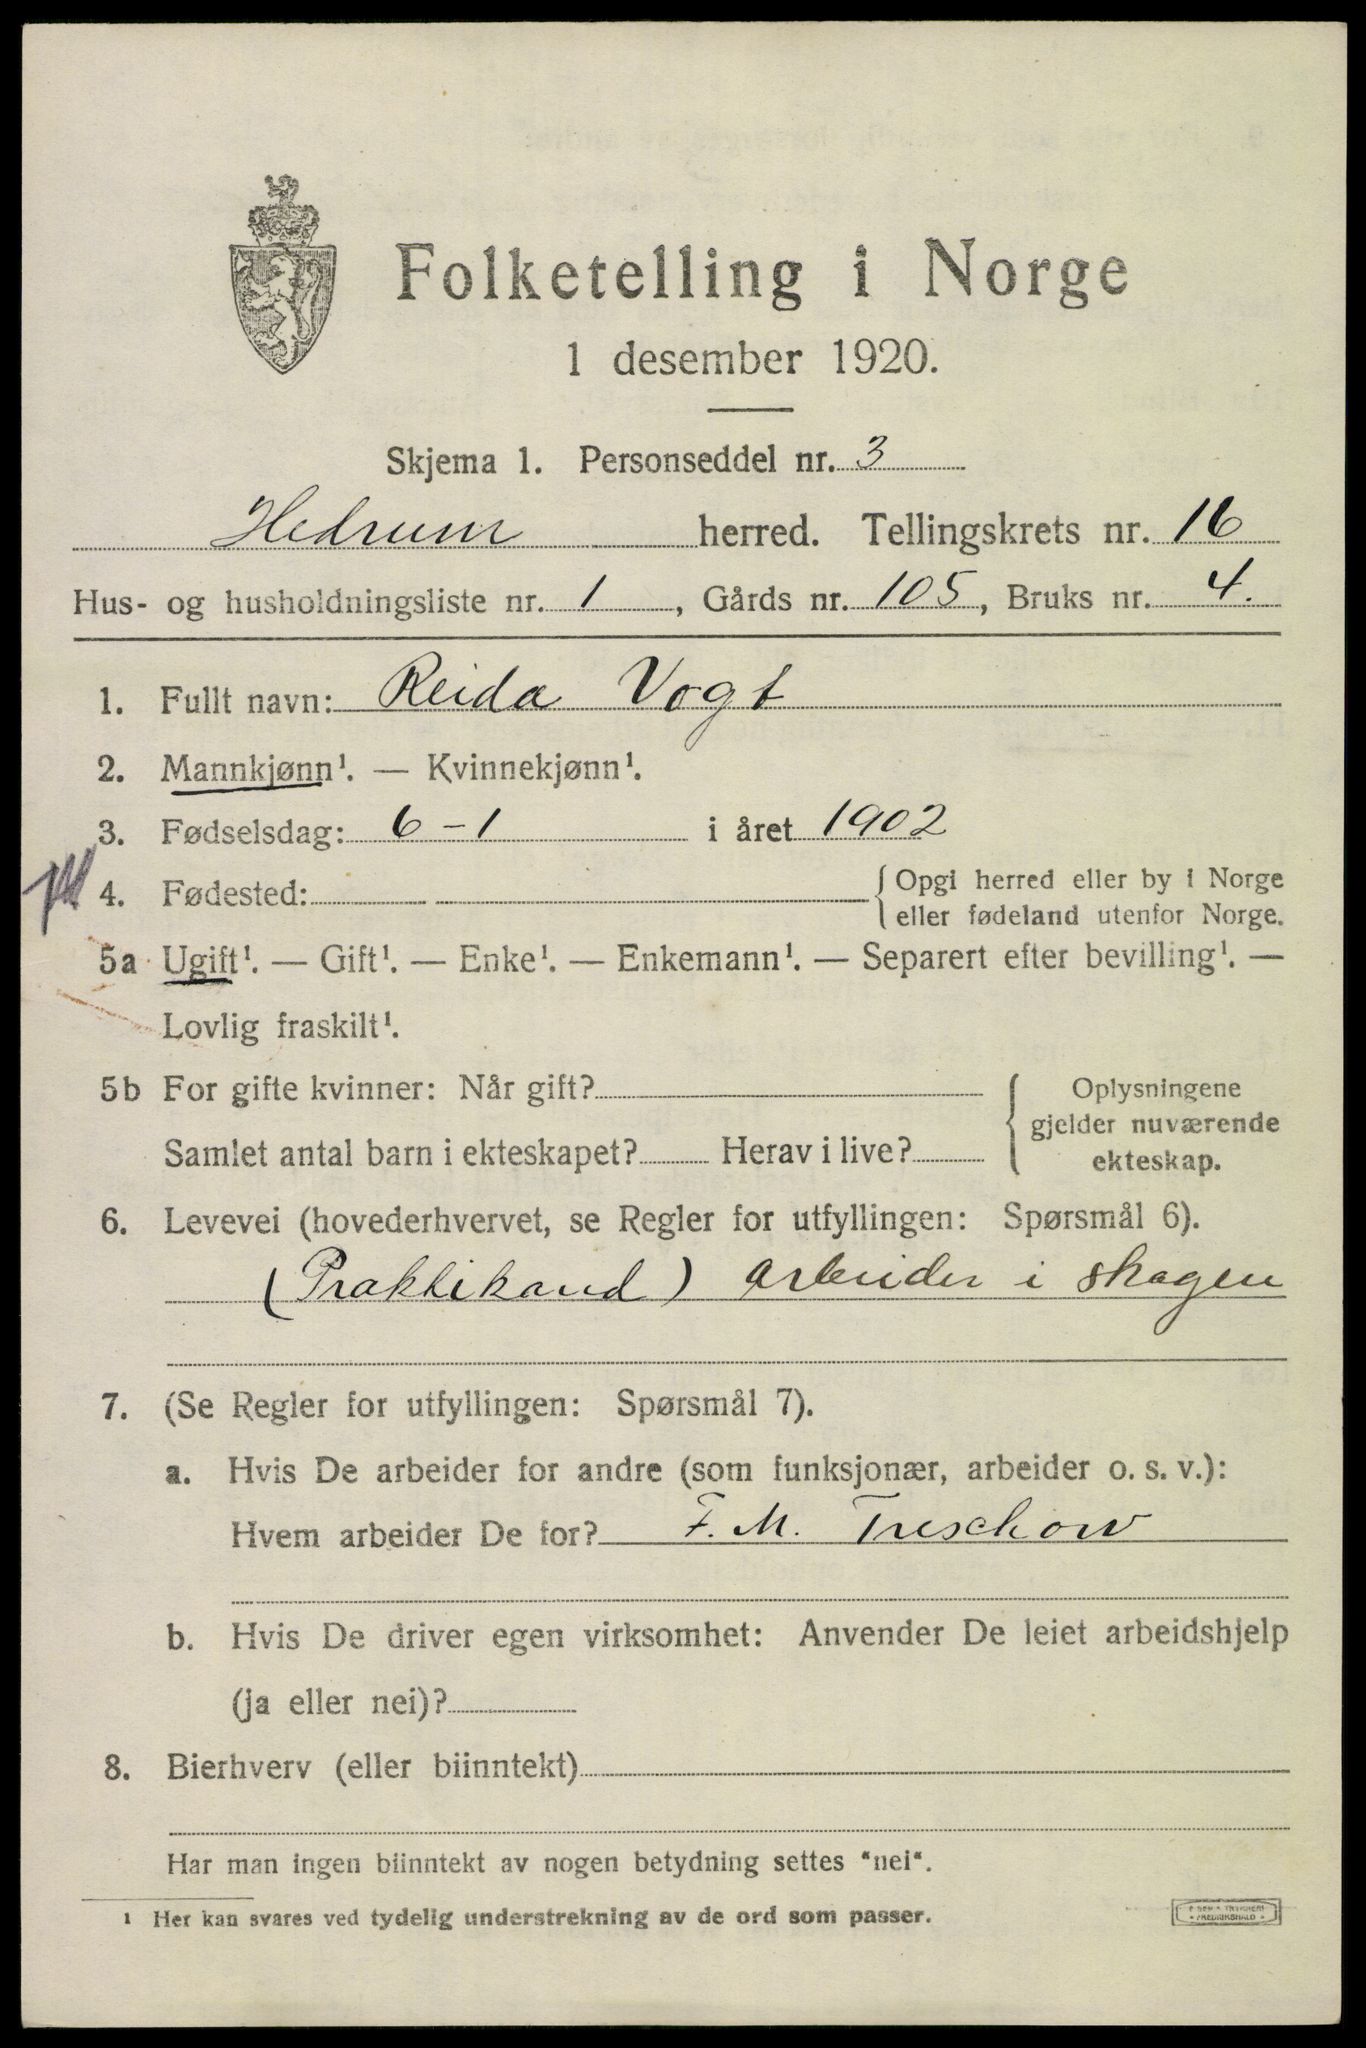 Folketelling i Norge
1 desember 1920.
Skjema 1. Personseddel nr. 3
Hedrum herred. Tellingskrets nr. 16
Hus- og husholdningsliste nr. 1, Gårds nr. 105, Bruks nr. 4.
1. Fullt navn: Reida Vogt
2. Mannkjønn¹. — Kvinnekjønn¹.
3. Fødselsdag: 6-1 i året 1902
4. Fødested: { Opgi herred eller by i Norge
eller fødeland utenfor Norge.
5a Ugift¹. — Gift¹. — Enke¹. — Enkemann¹. — Separert efter bevilling¹. —
Lovlig fraskilt¹.
5b For gifte kvinner: Når gift? { Oplysningene
gjelder nuværende
Samlet antal barn i ekteskapet? Herav i live? ekteskap.
6. Levevei (hovederhvervet, se Regler for utfyllingen: Spørsmål 6).
(Praktikand) arbeider i skogen
7. (Se Regler for utfyllingen: Spørsmål 7).
a. Hvis De arbeider for andre (som funksjonær, arbeider o. s. v.):
Hvem arbeider De for? F. M. Treschow
b. Hvis De driver egen virksomhet: Anvender De leiet arbeidshjelp
(ja eller nei)?
8. Bierhverv (eller biinntekt)
Har man ingen biinntekt av nogen betydning settes "nei".
¹ Her kan svares ved tydelig understrekning av de ord som passer.